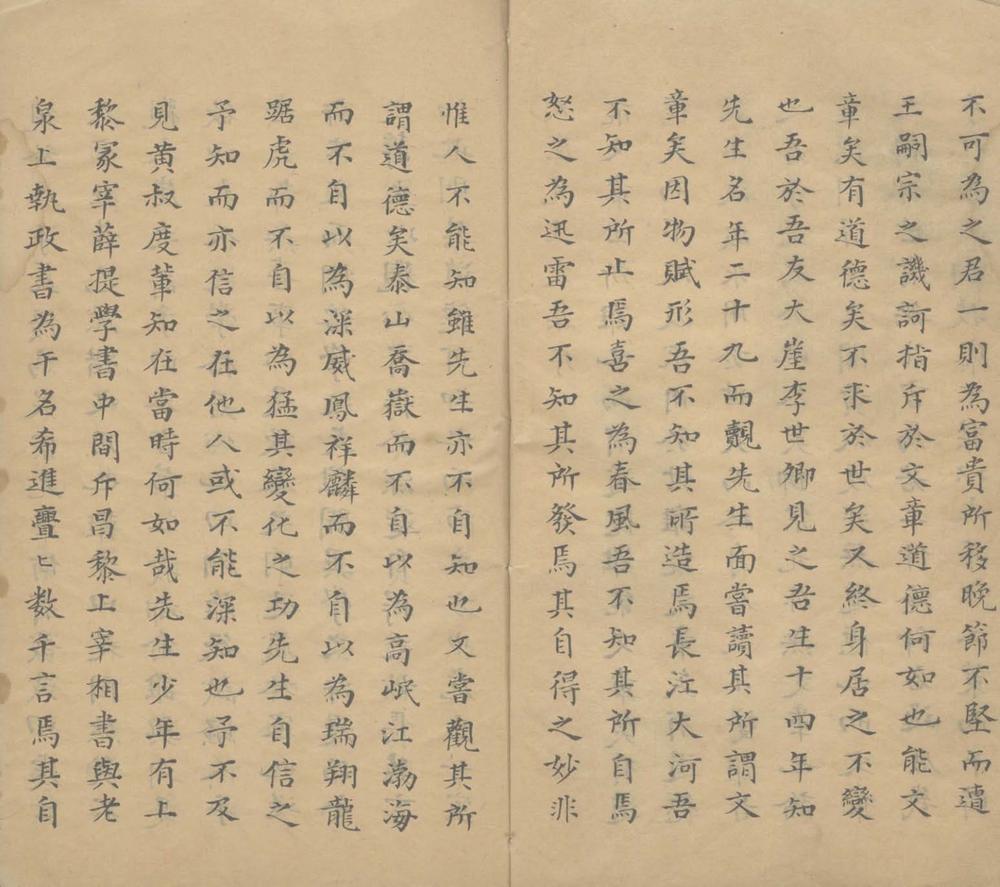 不可為之君一則為富貴所移晚節不堅而遺
王嗣宗之譏訶指斥於文章道德何如也能文
章矣有道德矣不求於世矣又終身居之不變
也吾於吾友大崖李世卿見之吾生十四年知
先生名年二十九而覿先生面嘗讀其所謂文
章矣因物賦形吾不知其所造焉長江大河吾
不知其所止焉喜之為春風吾不知其所自焉
怒之為迅雷吾不知其所發焉其自得之妙非
惟人不能知雖先生亦不自知也又嘗觀其所
謂道德矣泰山喬嶽而不自以為高岷江渤海
而不自以為深威鳳祥麟而不自以為瑞翔龍
踞虎而不自以為猛其變化之功先生自信之
予知而亦信之在他人或不能深知也予不及
見黃叔度輩知在當時何如哉先生少年有上
黎冢宰薛提學書中間斥昌黎上宰相書與老
泉上執政書為干名希進亹〻数千言焉其自